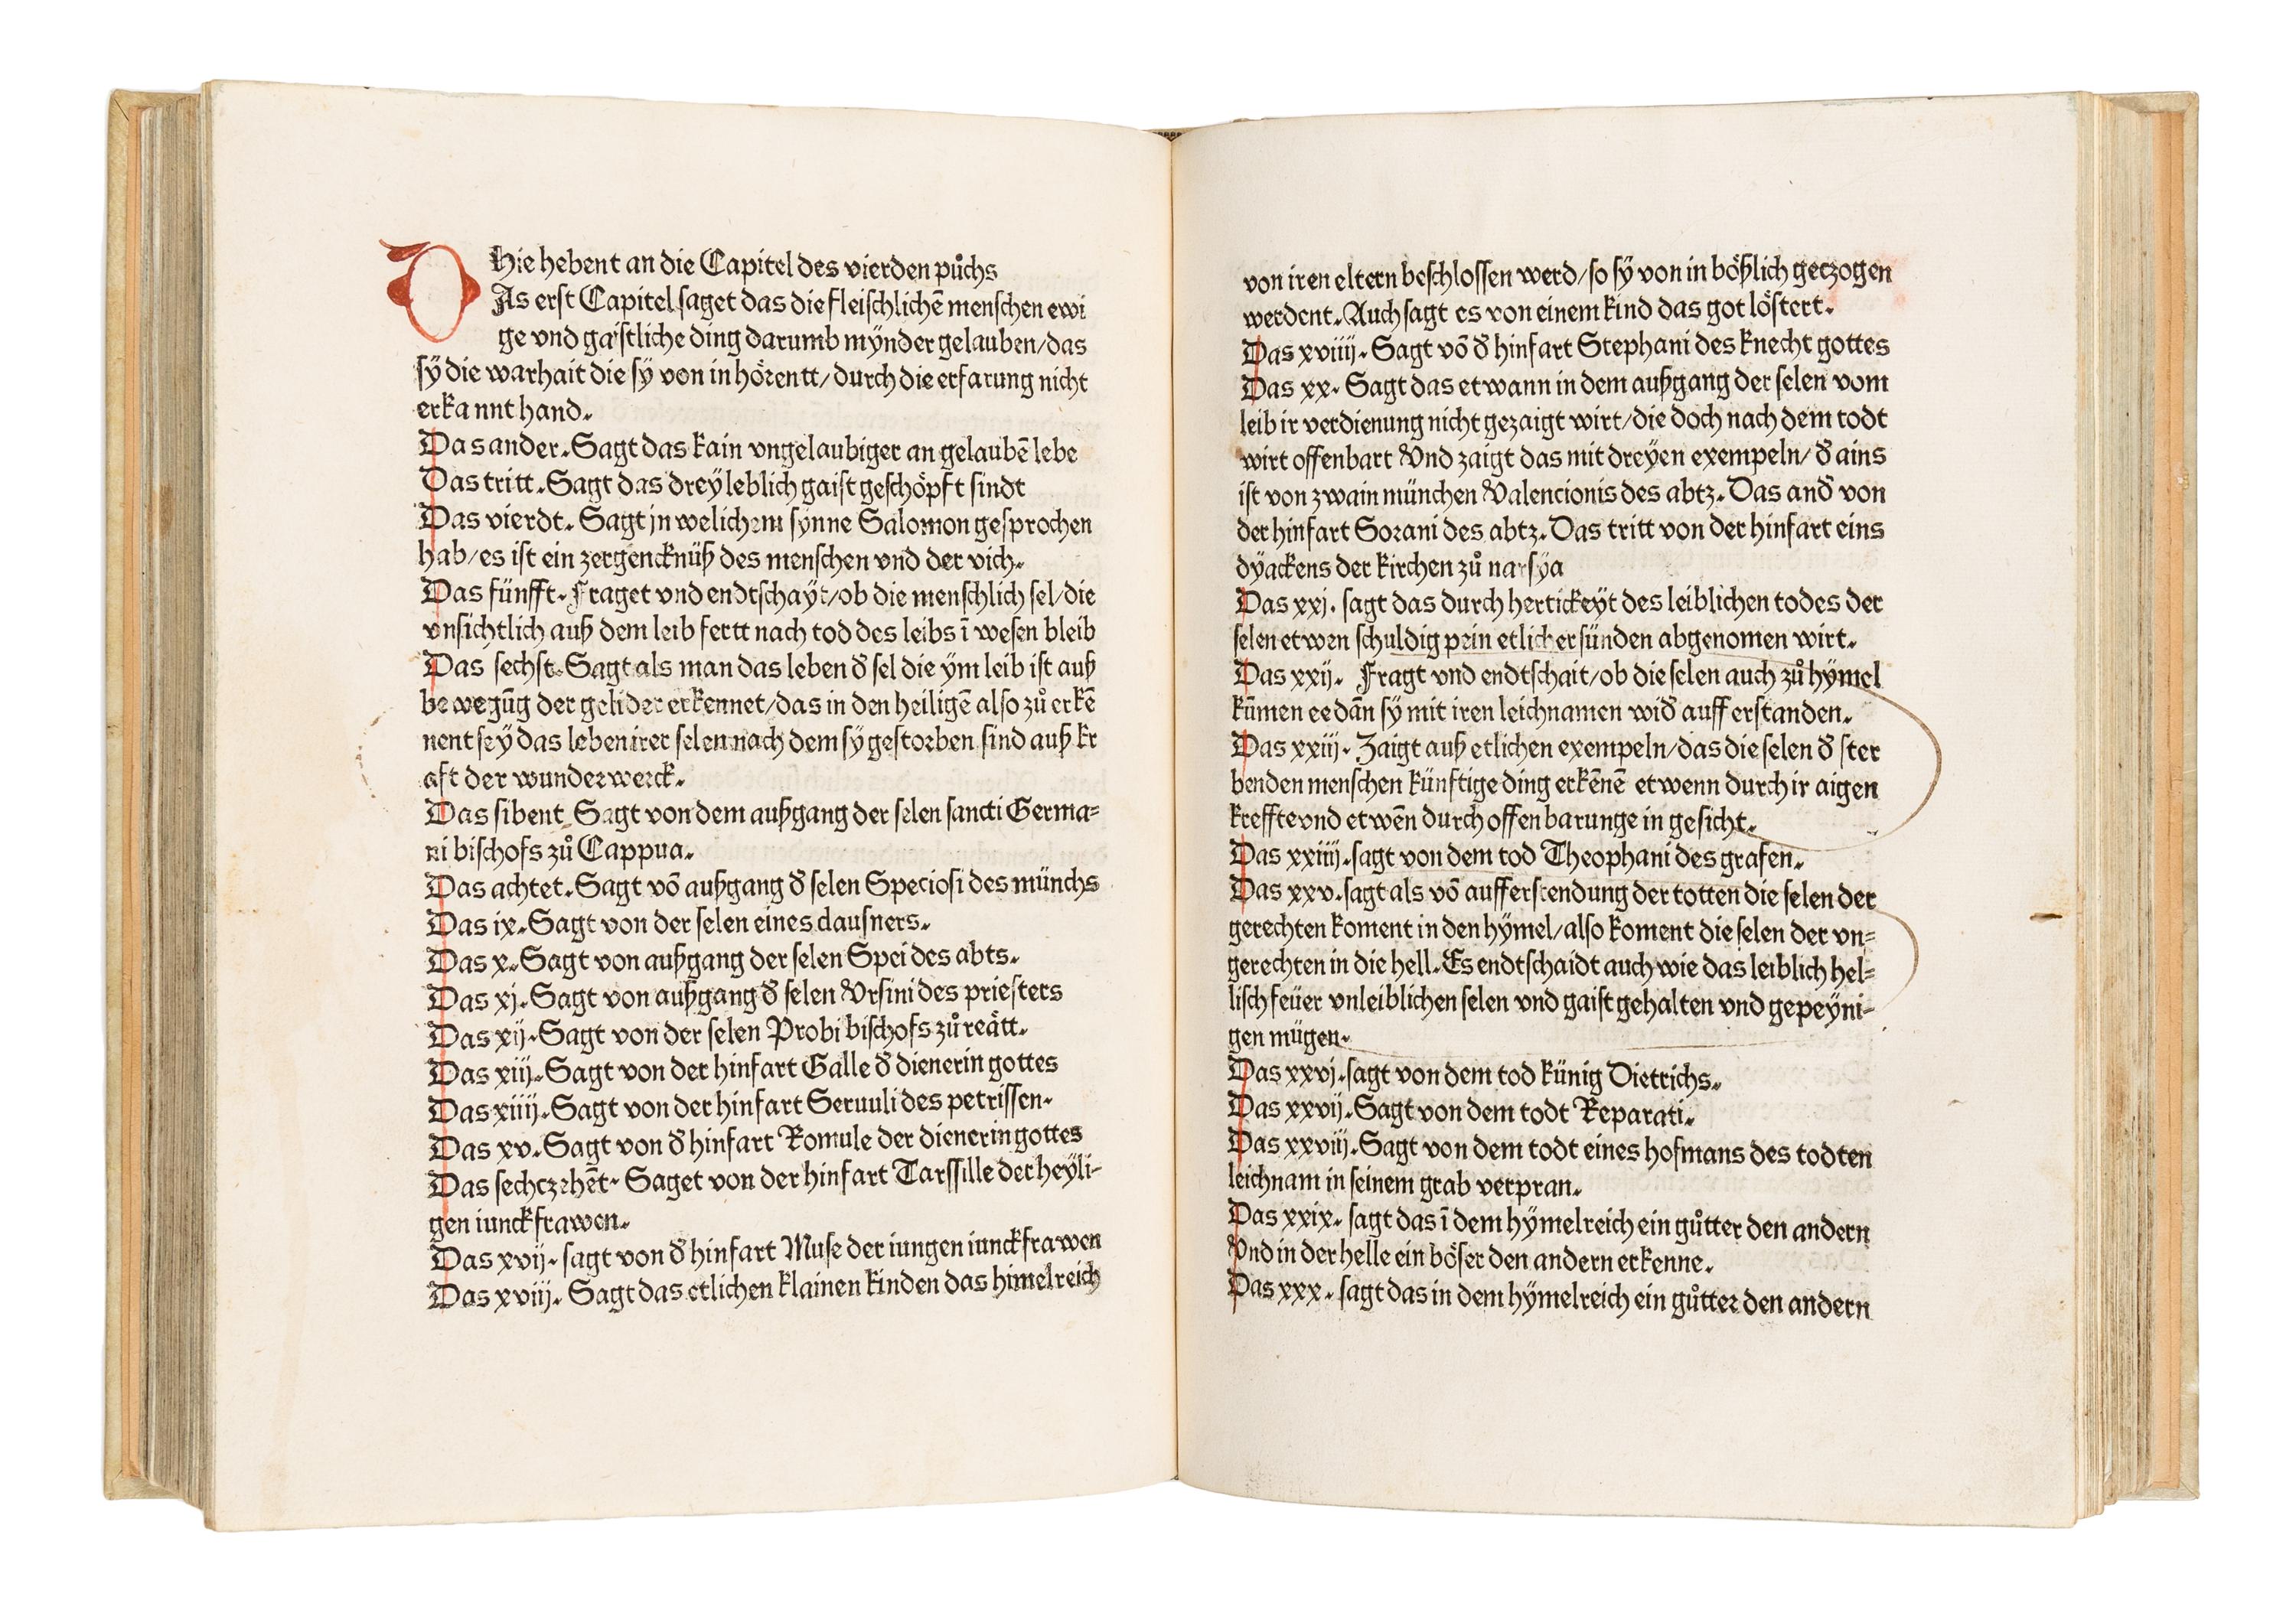 Hie hebent an die Capitel des vierden půchs
DAs erst Capitel saget das die fleischlichē menschen ewi
ge vnd gaistliche ding darumb mÿnder gelauben/das
sÿ die warhait die sÿ von in hörentt/durch die erfarung nicht
erkannt hand.
Das ander. Sagt das kain vngelaubiger an gelaubē lebe
Das tritt. Sagt das dreÿ leblich gaist geschöpft sindt
Das vierdt. Sagt jn welichem sÿnne Salomon gesprochen
hab/es ist ein zergencknüß des menschen vnd der vich.
Das fünfft. Fraget vnd endtschaÿt/ob die menschlich sel/die
vnsichtlich auß dem leib fertt nach tod des leibs ī wesen bleib
Das sechst. Sagt als man das leben đ sel die ÿm leib ist auß
bewegūg der gelider erkennet/das in den heiligē also zů erkē
nent seÿ das leben irer selen nach dem sÿ gestorben sind auß kr
aft der wunderwerck.
Das sibent Sagt von dem außgang der selen sancti Germa=
ni bischofs zů Cappua.
Das achtet. Sagt vō außgang đ selen Speciosi des münchs
Das ix. Sagt von der selen eines clausners.
Das x. Sagt von außgang der selen Spei des abts.
Das xj. Sagt von außgang đ selen Vrsini des priesters
Das xij. Sagt von der selen Probi bischofs zů reätt.
Das xiij. Sagt von der hinfart Galle đ dienerin gottes
Das xiiij. Sagt von der hinfart Seruuli des petrissen.
Das xv. Sagt von đ hinfart Romule der dienerin gottes
Das sechczehēt. Saget von der hinfart Tarssille der heÿli-
gen iunckfrawen.
Das xvij. sagt von đ hinfart Muse der iungen iunckfrawen
Das xviij. Sagt das etlichen klainen kinden das himelreich
von iren eltern beschlossen werd/so sÿ von in bößlich geczogen
werdent. Auch sagt es von einem kind das got löstert.
Das xviiij. Sagt vō đ hinfart Stephani des knecht gottes
Das xx. Sagt das etwann in dem außgang der selen vom
leib ir verdienung nicht gezaigt wirt/die doch nach dem todt
wirt offenbart Vnd zaigt das mit dreÿen exempeln/đ ains
ist von zwain münchen Valencionis des abtz. Das anđ von
der hinfart Sorani des abtz. Das tritt von der hinfart eins
dÿackens der kirchen zů narsÿa
Das xxj. sagt das durch hertickeÿt des leiblichen todes der
selen etwen schuldig pein etlicher sünden abgenomen wirt.
Das xxij. Fragt vnd endtschait/ob die selen auch zů hÿmel
kūmen ee dān sÿ mit iren leichnamen wiđ auff erstanden.
Das xxiij. Zaigt auß etlichen exempeln/das die selen đ ster
benden menschen künftige ding erkēnē etwenn durch ir aigen
krefft vnd etwēn durch offenbarunge in gesicht.
Das xxiiij. sagt von dem tod Theophani des grafen.
Das xxv. sagt als vō aufferstendung der totten die selen der
gerechten koment in den hÿmel/also koment die selen der vn=
gerechten in die hell. Es endtschaidt auch wie das leiblich hel=
lisch feüer vnleiblichen selen vnd gaist gehalten vnd gepeÿni-
gen mügen.
Das xxvj. sagt von dem tod künig Dietrichs.
Das xxvij. Sagt von dem todt Reparati.
Das xxviij. Sagt von dem todt eines hofmans des todten
leichnam in seinem grab verpran.
Das xxix. sagt das ī dem hÿmelreich ein gůtter den andern
Vnd in der helle ein böser den andern erkenne.
Das xxx. sagt das in dem hÿmelreich ein gůtter den andern